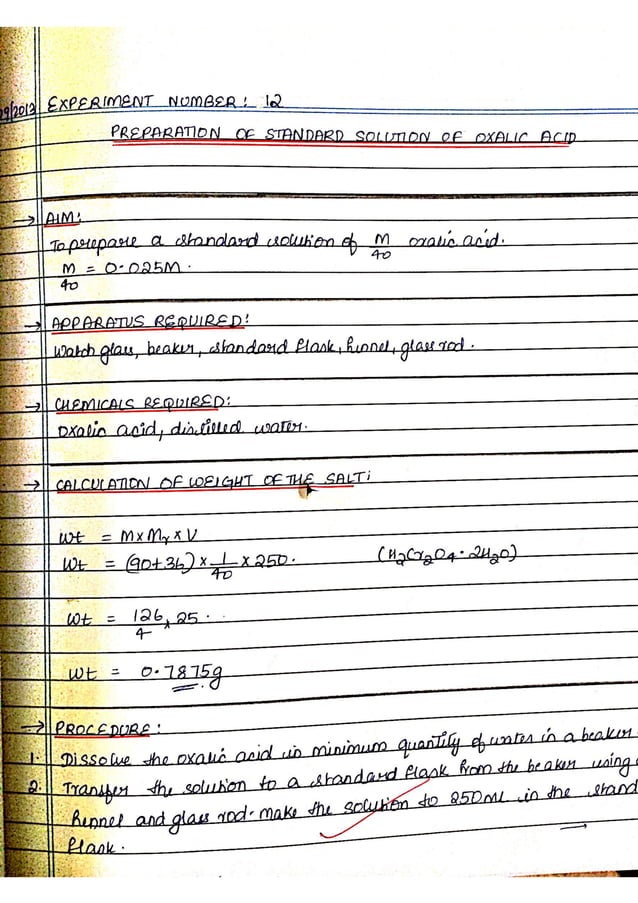 09/2013 EXPERIMENT NUMBER: 12
PREPARATION OF STANDARD SOLUTION OF OXALIC ACID
→ AIM:
To prepare a standard solution of M/40 oxalic acid.
M/40 = 0.025M.
→ APPARATUS REQUIRED:
Watch glass, beaker, standard flask, funnel, glass rod.
→ CHEMICALS REQUIRED:
Oxalic acid, distilled water.
→ CALCULATION OF WEIGHT OF THE SALT:
wt = M×Mr×V
Wt = (90+36)×1/40×250. (H2Cr2O4·2H2O)
wt = 126/4 × 25..
wt = 0.7875g
→ PROCEDURE:
1. Dissolve the oxalic acid in minimum quantity of water in a beaker.
2. Transfer the solution to a standard flask from the beaker using
funnel and glass rod. make the solution to 250ml in the stand
flask.